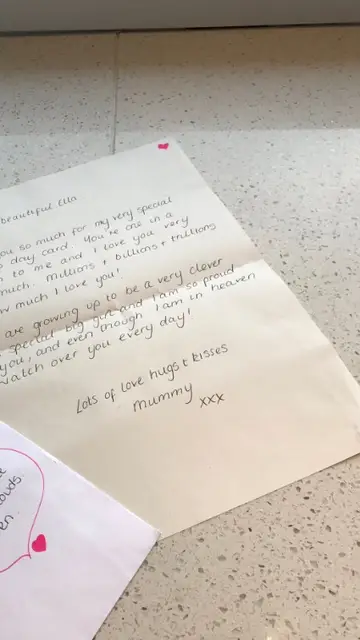 beautiful Ella
you so much for my very special
day card. You're one in a
to me and I love you very
much. Millions + billions + trillions
how much I love you!
are growing up to be a very clever
special big girl and I am so proud
you, and even though I am in heaven
watch over you every day!
Lots of love hugs & kisses
Mummy xxx